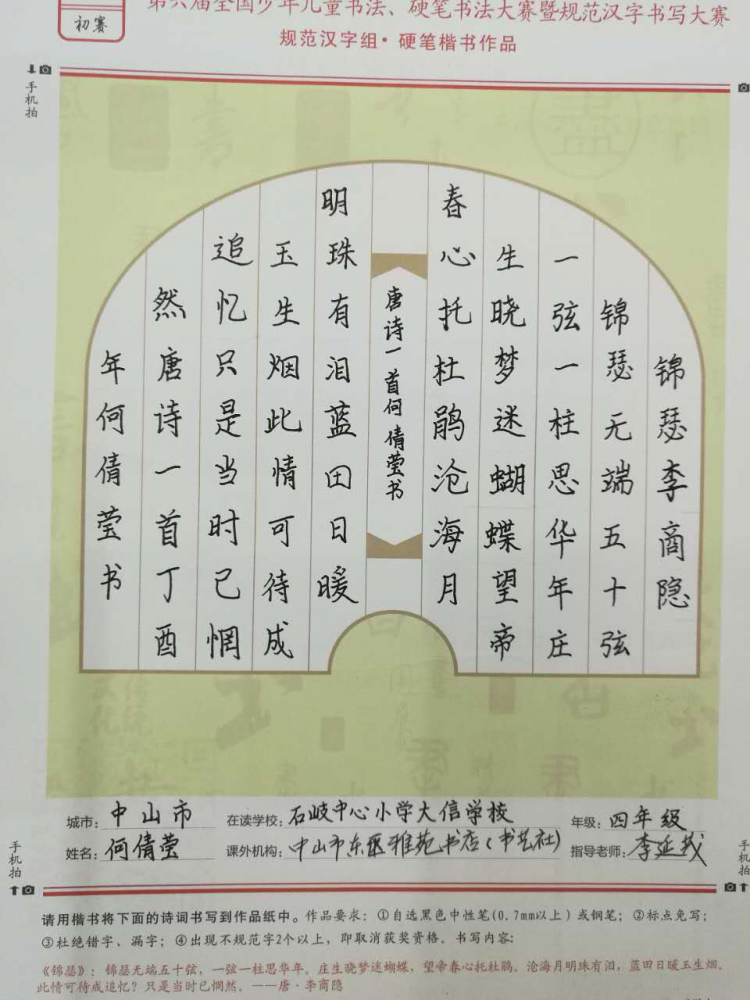 初赛
第六届全国少年儿童书法、硬笔书法大赛暨规范汉字书写大赛
规范汉字组·硬笔楷书作品
手机拍
锦瑟李商隐
锦瑟无端五十弦
一弦一柱思华年庄
生晓梦迷蝴蝶望帝
春心托杜鹃沧海月
唐诗一首何倩莹书
明珠有泪蓝田日暖
玉生烟此情可待成
追忆只是当时已惘
然唐诗一首丁酉
年何倩莹书
城市：中山市 在读学校：石岐中心小学大信学校 年级：四年级
姓名：何倩莹 课外机构：中山市东区雅苑书店（书艺社） 指导老师：李延
手机拍
手机拍
请用楷书将下面的诗词书写到作品纸中。作品要求：①自选黑色中性笔(0.7mm以上）或钢笔；②标点免写；
③杜绝错字、漏字；④出现不规范字2个以上，即取消获奖资格。书写内容：
《锦瑟》：锦瑟无端五十弦，一弦一柱思华年。庄生晓梦迷蝴蝶，望帝春心托杜鹃。沧海月明珠有泪，蓝田日暖玉生烟。
此情可待成追忆？只是当时已惘然。——唐·李商隐